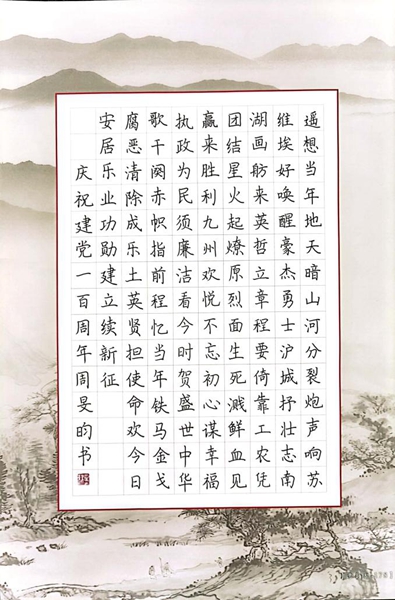 遥想当年地天暗山河分裂炮声响苏
维埃好唤醒豪杰勇士沪城抒壮志南
湖画舫来英哲立章程要倚靠工农凭
团结星火起燎原烈面生死溅鲜血见
赢来胜利九州欢悦不忘初心谋幸福
执政为民须廉洁看今时贺盛世中华
歌千阕赤帜指前程忆当年铁马金戈
腐恶清除成乐土英贤担使命欢今日
安居乐业功勋建立续新征
庆祝建党一百周年周旻昀书